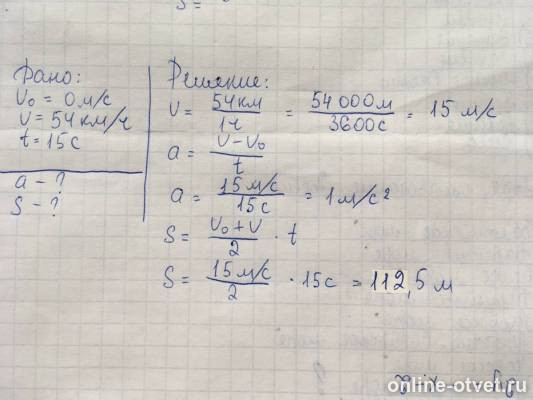 S =
Дано:
V₀ = 0 м/с
V = 54 км/ч
t = 15 с
a - ?
S - ?
Решение:
V = 54 км / 1 ч = 54 000 м / 3600 с = 15 м/с
a = V - V₀ / t
a = 15 м/с / 15 с = 1 м/с²
S = V₀ + V / 2 · t
S = 15 м/с / 2 · 15 с = 112,5 м
online-otvet.ru